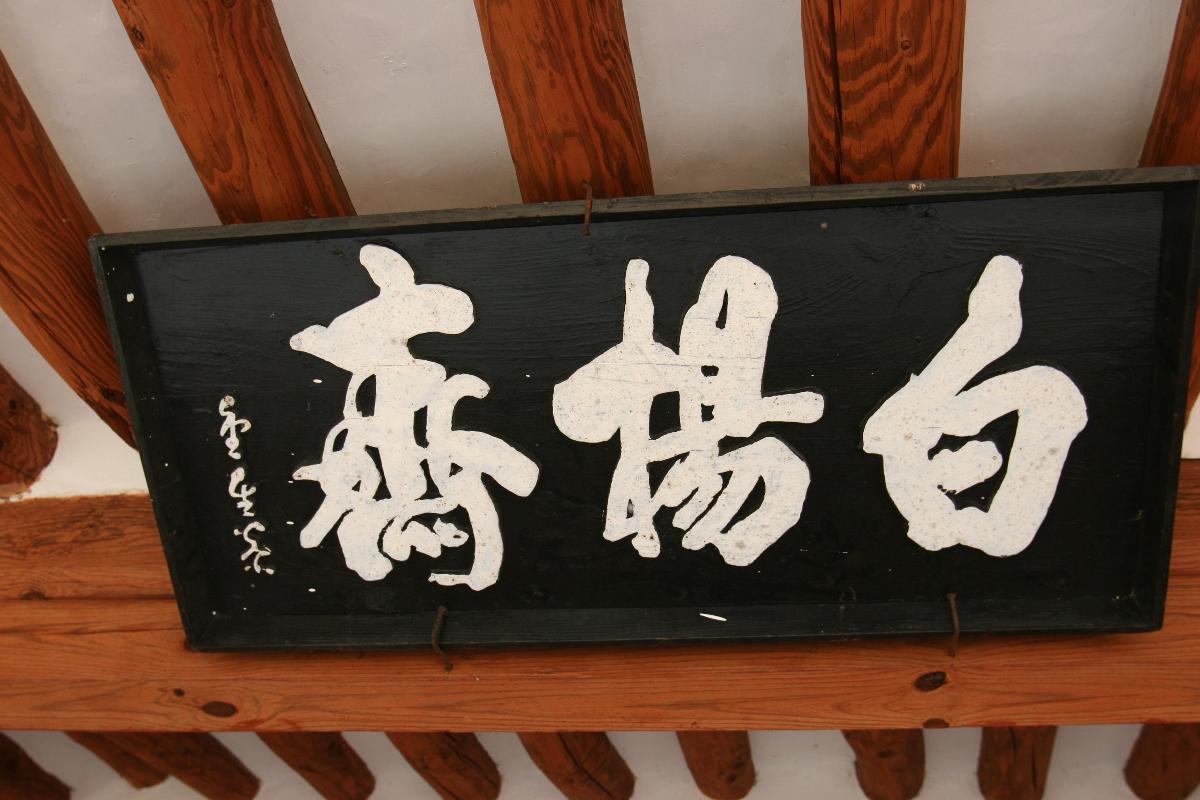 白楊齋